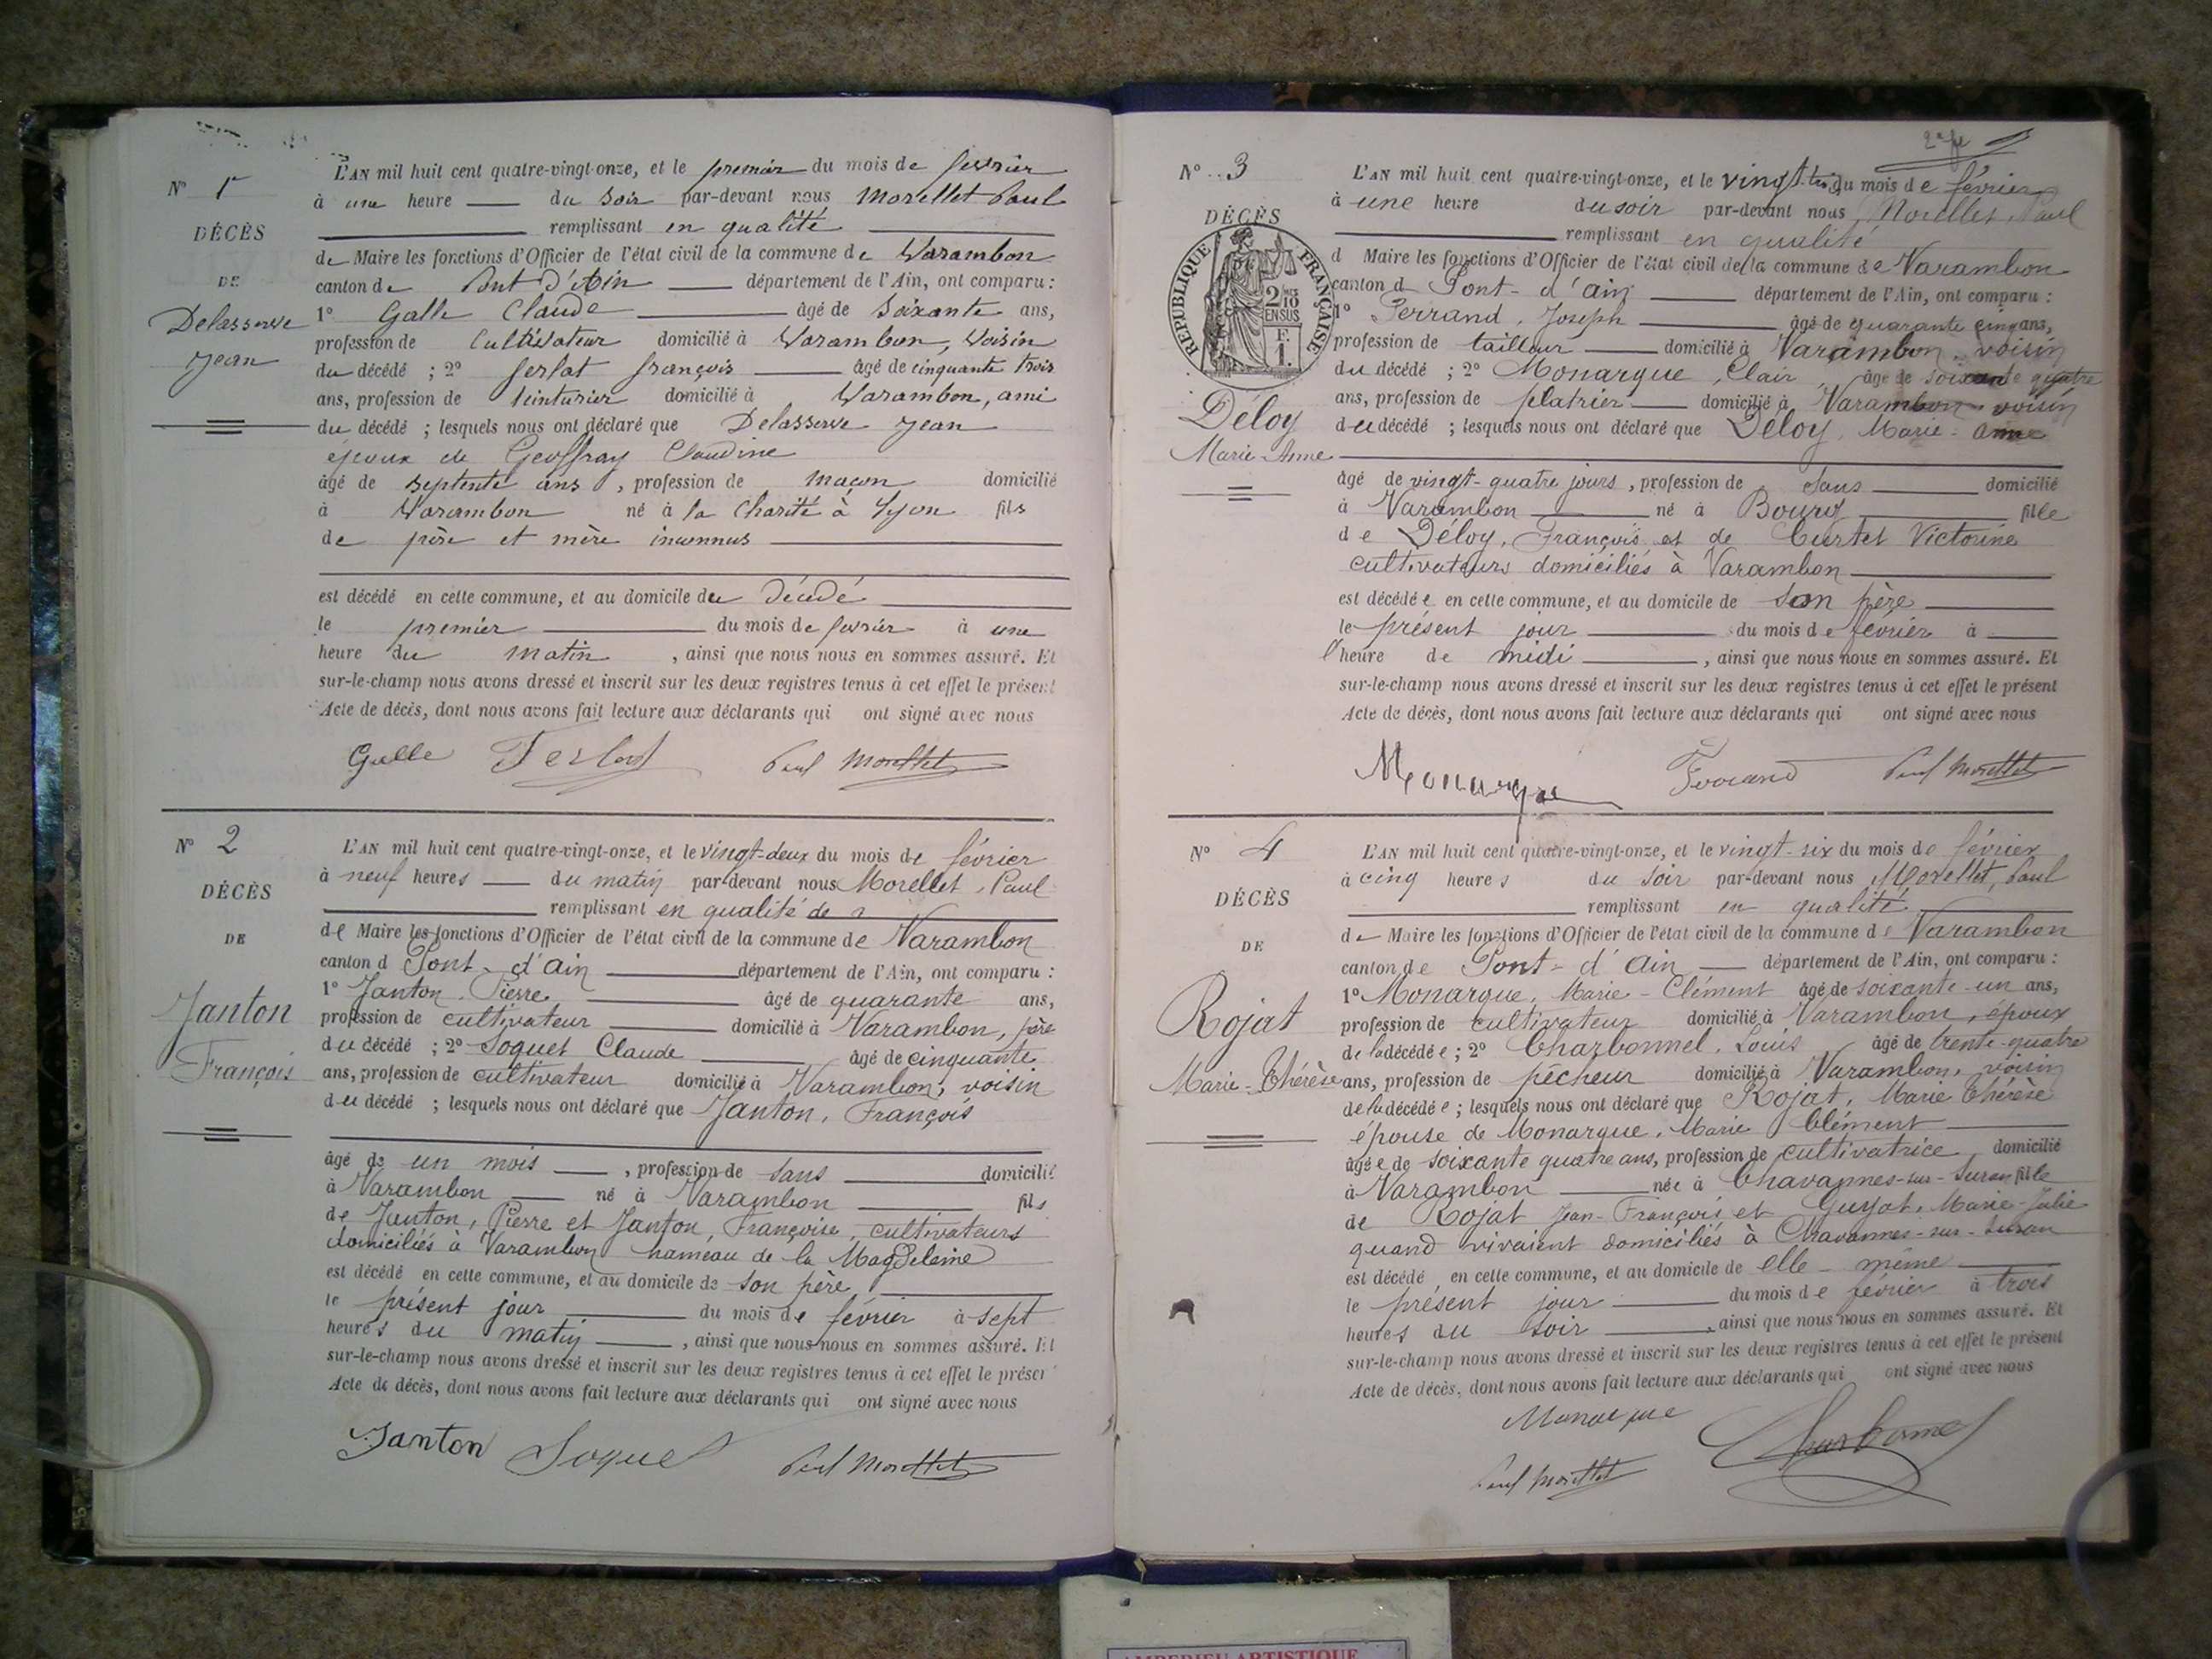 N° 1er
DÉCÈS
DE
Delasserve
Jean
L'AN mil huit cent quatre-vingt-onze, et le premier du mois de février
à une heure du soir par-devant nous Morellet Paul
remplissant en qualité
de Maire les fonctions d'Officier de l'état civil de la commune de Varambon
canton de Pont d'Ain département de l'Ain, ont comparu :
1° Galle Claude âgé de soixante ans,
profession de Cultivateur domicilié à Varambon, voisin
du décédé ; 2° ferlat françois âgé de cinquante trois
ans, profession de teinturier domicilié à Varambon, ami
du décédé ; lesquels nous ont déclaré que Delasserve Jean
époux de Geoffray Claudine
âgé de septente ans, profession de maçon domicilié
à Varambon né à la Charité à Lyon fils
de père et mère inconnus
est décédé en cette commune, et au domicile du décédé
le premier du mois de février à une
heure du matin, ainsi que nous nous en sommes assuré. Et
sur-le-champ nous avons dressé et inscrit sur les deux registres tenus à cet effet le présent
Acte de décès, dont nous avons fait lecture aux déclarants qui ont signé avec nous
Galle Ferlat Paul Morellet
N° 2
DÉCÈS
DE
Janton
François
L'AN mil huit cent quatre-vingt-onze, et le vingt-deux du mois de février
à neuf heures du matin par-devant nous Morellet, Paul
remplissant en qualité de
de Maire les fonctions d'Officier de l'état civil de la commune de Varambon
canton d Pont-d'Ain département de l'Ain, ont comparu :
1° Janton, Pierre âgé de quarante ans,
profession de cultivateur domicilié à Varambon, père
du décédé ; 2° Soquet Claude âgé de cinquante
ans, profession de cultivateur domicilié à Varambon, voisin
du décédé ; lesquels nous ont déclaré que Janton, François
âgé de un mois, profession de sans domicilié
à Varambon né à Varambon fils
de Janton, Pierre et Janton, Françoise, cultivateurs
domiciliés à Varambon hameau de la Magdeleine
est décédé en cette commune, et au domicile de son père
le présent jour du mois de février à sept
heures du matin, ainsi que nous nous en sommes assuré. Et
sur-le-champ nous avons dressé et inscrit sur les deux registres tenus à cet effet le présent
Acte de décès, dont nous avons fait lecture aux déclarants qui ont signé avec nous
Janton Soquet Paul Morellet
N° 3
DÉCÈS
RÉPUBLIQUE FRANÇAISE
2/10 EN SUS
F. 1.
Déloy
Marie-Anne
L'AN mil huit cent quatre-vingt-onze, et le vingt-trois du mois de février
à une heure du soir par-devant nous Morellet, Paul
remplissant en qualité
d Maire les fonctions d'Officier de l'état civil de la commune de Varambon
canton d Pont-d'ain département de l'Ain, ont comparu :
1° Ferrand, Joseph âgé de quarante cinq ans,
profession de tailleur domicilié à Varambon, voisin
du décédé ; 2° Monarque, Clair, âgé de soixante quatre
ans, profession de platrier domicilié à Varambon voisin
du décédé ; lesquels nous ont déclaré que Déloy, Marie-Anne
âgé de vingt-quatre jours, profession de sans domicilié
à Varambon né à Bourg fille
de Déloy, François et de Curtet Victorine
cultivateurs domiciliés à Varambon
est décédée en cette commune, et au domicile de son père
le présent jour du mois de février à
l'heure de midi, ainsi que nous nous en sommes assuré. Et
sur-le-champ nous avons dressé et inscrit sur les deux registres tenus à cet effet le présent
Acte de décès, dont nous avons fait lecture aux déclarants qui ont signé avec nous
Monarque Ferrand Paul Morellet
N° 4
DÉCÈS
DE
Rojat
Marie-Thérèse
L'AN mil huit cent quatre-vingt-onze, et le vingt-six du mois de février
à cinq heures du soir par-devant nous Morellet, Paul
remplissant en qualité
de Maire les fonctions d'Officier de l'état civil de la commune de Varambon
canton de Pont-d'Ain département de l'Ain, ont comparu :
1° Monarque, Marie-Clément âgé de soixante-un ans,
profession de cultivateur domicilié à Varambon, époux
de la décédée ; 2° Charbonnel, Louis âgé de trente-quatre
ans, profession de pêcheur domicilié à Varambon, voisin
de la décédée ; lesquels nous ont déclaré que Rojat, Marie Thérèse
épouse de Monarque, Marie Clément
âgée de soixante quatre ans, profession de cultivatrice domicilié
à Varambon née à Chavannes-sur-Suran fille
de Rojat Jean-François et Guyot, Marie-Julie
quand vivaient domiciliés à Chavannes-sur-Suran
est décédé en cette commune, et au domicile de elle-même
le présent jour du mois de février à trois
heures du soir, ainsi que nous nous en sommes assuré. Et
sur-le-champ nous avons dressé et inscrit sur les deux registres tenus à cet effet le présent
Acte de décès, dont nous avons fait lecture aux déclarants qui ont signé avec nous
Monarque Charbonnel
Paul Morellet
AMBERIEU ARTISTIQUE